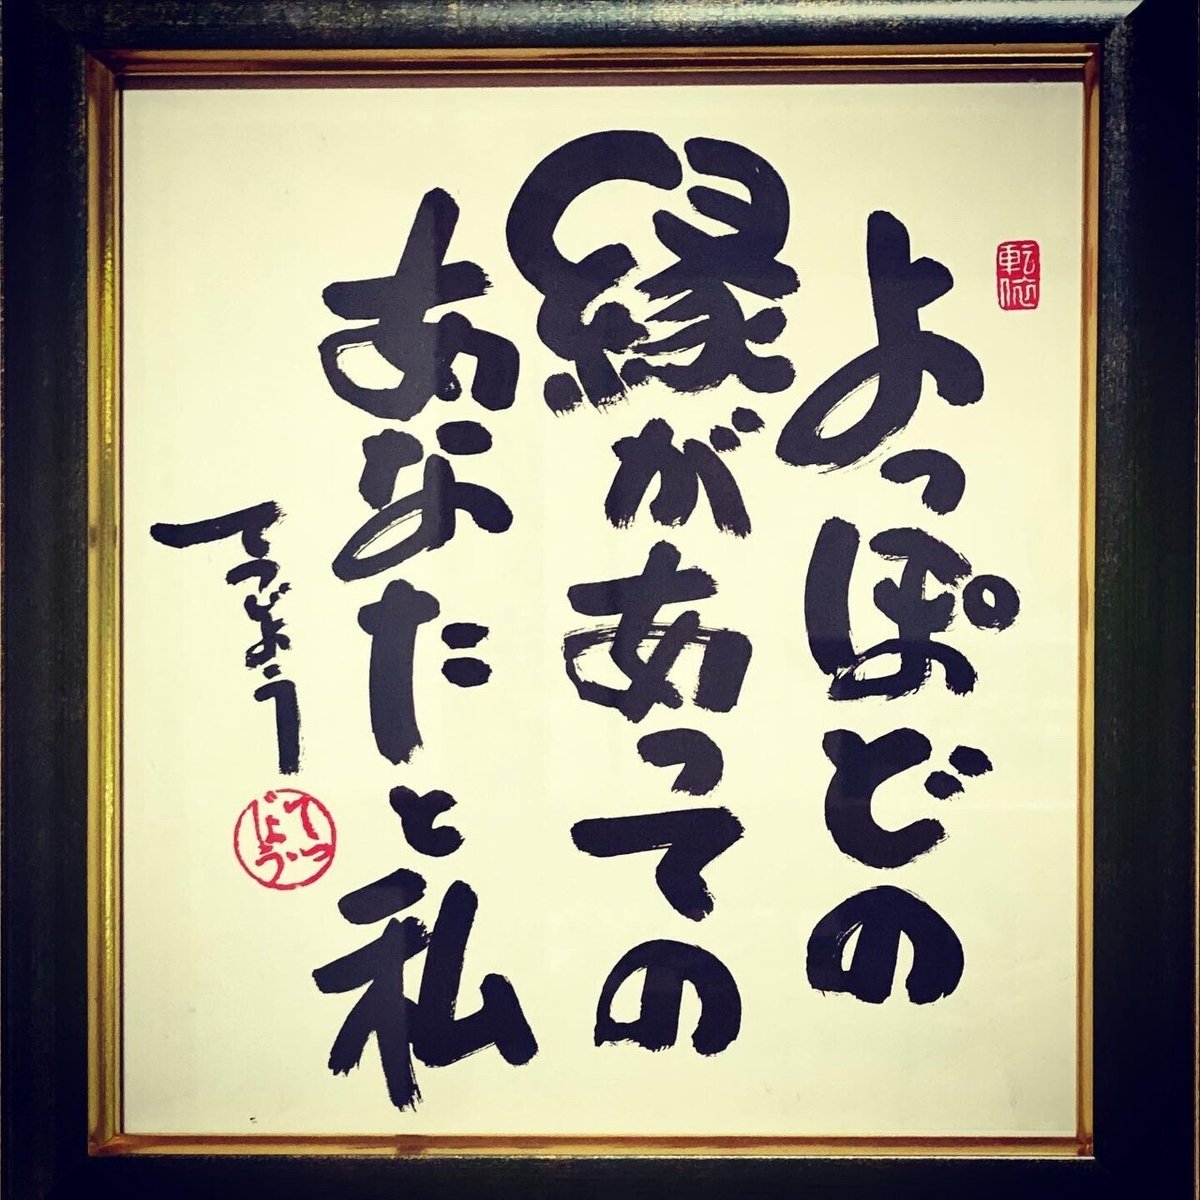 よっぽどの
縁があっての
あなたと私
てつじょう
転依
てつ
じょう